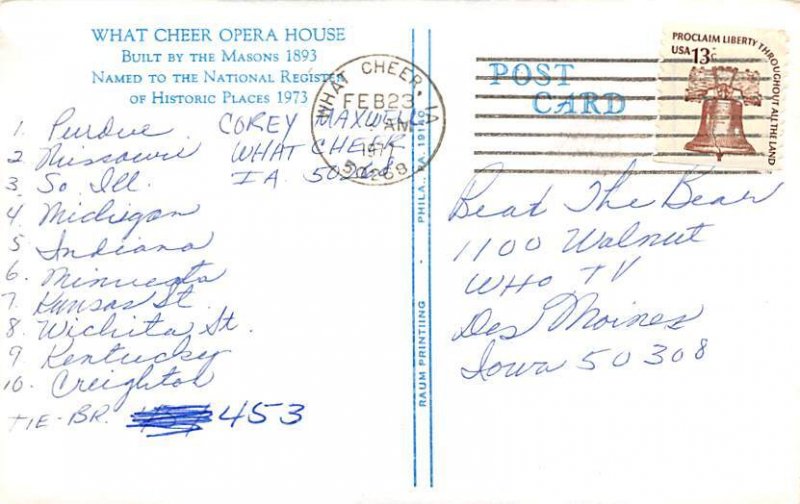 WHAT CHEER OPERA HOUSE
BUILT BY THE MASONS 1893
NAMED TO THE NATIONAL REGISTER
OF HISTORIC PLACES 1973
1. Purdue
2 Missouri
3. So. Ill.
4. Michigan
5 Indiana
6. Minnesota
7. Kansas St.
8. Wichita St.
9. Kentucky
10. Creighton
TIE-BR. 453
COREY MAXWELL
WHAT CHEER
IA. 50268
WHAT CHEER, IA
FEB 23
AM
50268
POST
CARD
PROCLAIM LIBERTY THROUGHOUT ALL THE LAND
USA 13c
Beat The Bear
1100 Walnut
WHO TV
Des Moines
Iowa 50308
RAUM PRINTIING - PHILA., PA. 19140